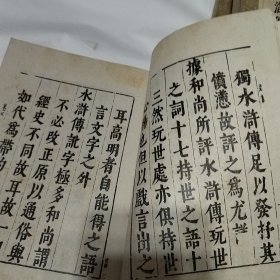 獨水滸傳足以發抒其
憤懣故評之為尤詳
據和尚所評水滸傳玩世
之詞十七持世之語十
三然玩世處亦俱持世
心腸也但以戲言出之
耳高明者自能得之語
言文字之外
水滸傳訛字極多和尚謂
不必改正原以通俗與
經史不同故耳故一
如代為帶的